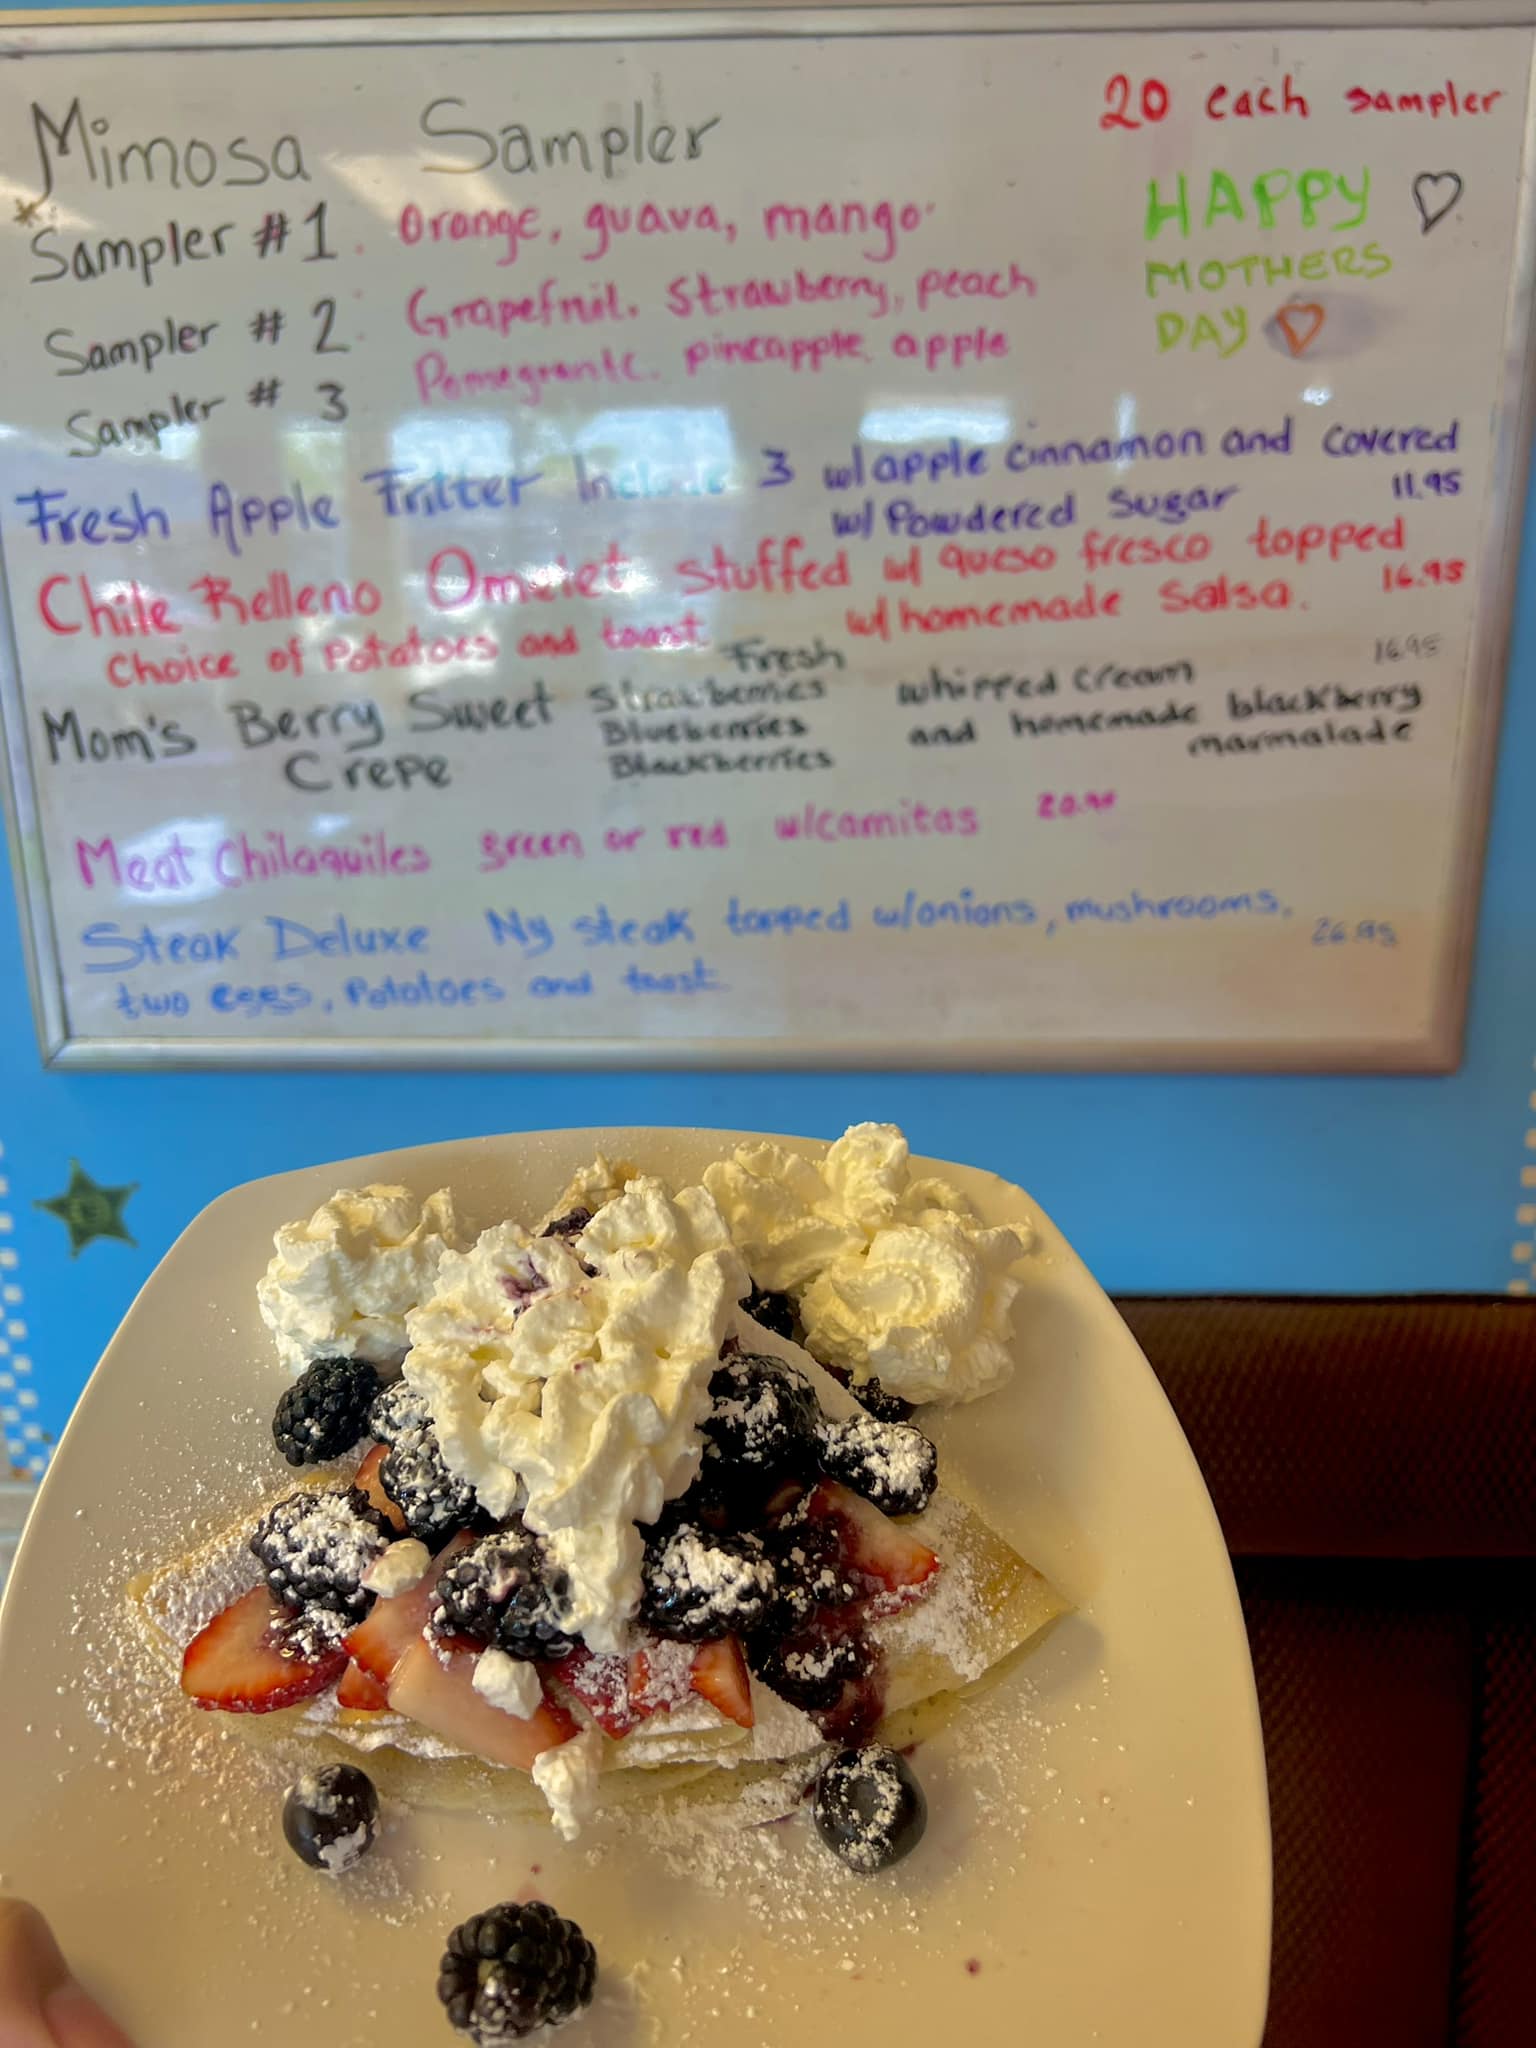 Mimosa Sampler 20 each sampler
* Sampler #1. Orange, guava, mango.
HAPPY
MOTHERS
DAY
Sampler # 2: Grapefruit. Strawberry, peach
Sampler # 3 Pomegrante. pineapple. apple
Fresh Apple Fritter Include 3 w/ apple cinnamon and covered
w/ Powdered Sugar 11.95
Chile Relleno Omelet stuffed w/ queso fresco topped
w/ homemade Salsa. 16.95
Choice of Potatoes and toast.
Mom's Berry Sweet Crepe
Fresh
Strawberries
Blueberries
Blackberries
whipped cream 16.95
and homemade blackberry
marmalade
Meat Chilaquiles green or red w/carnitas
Steak Deluxe Ny steak topped w/onions, mushrooms. 26.95
two eggs, Potatoes and toast.